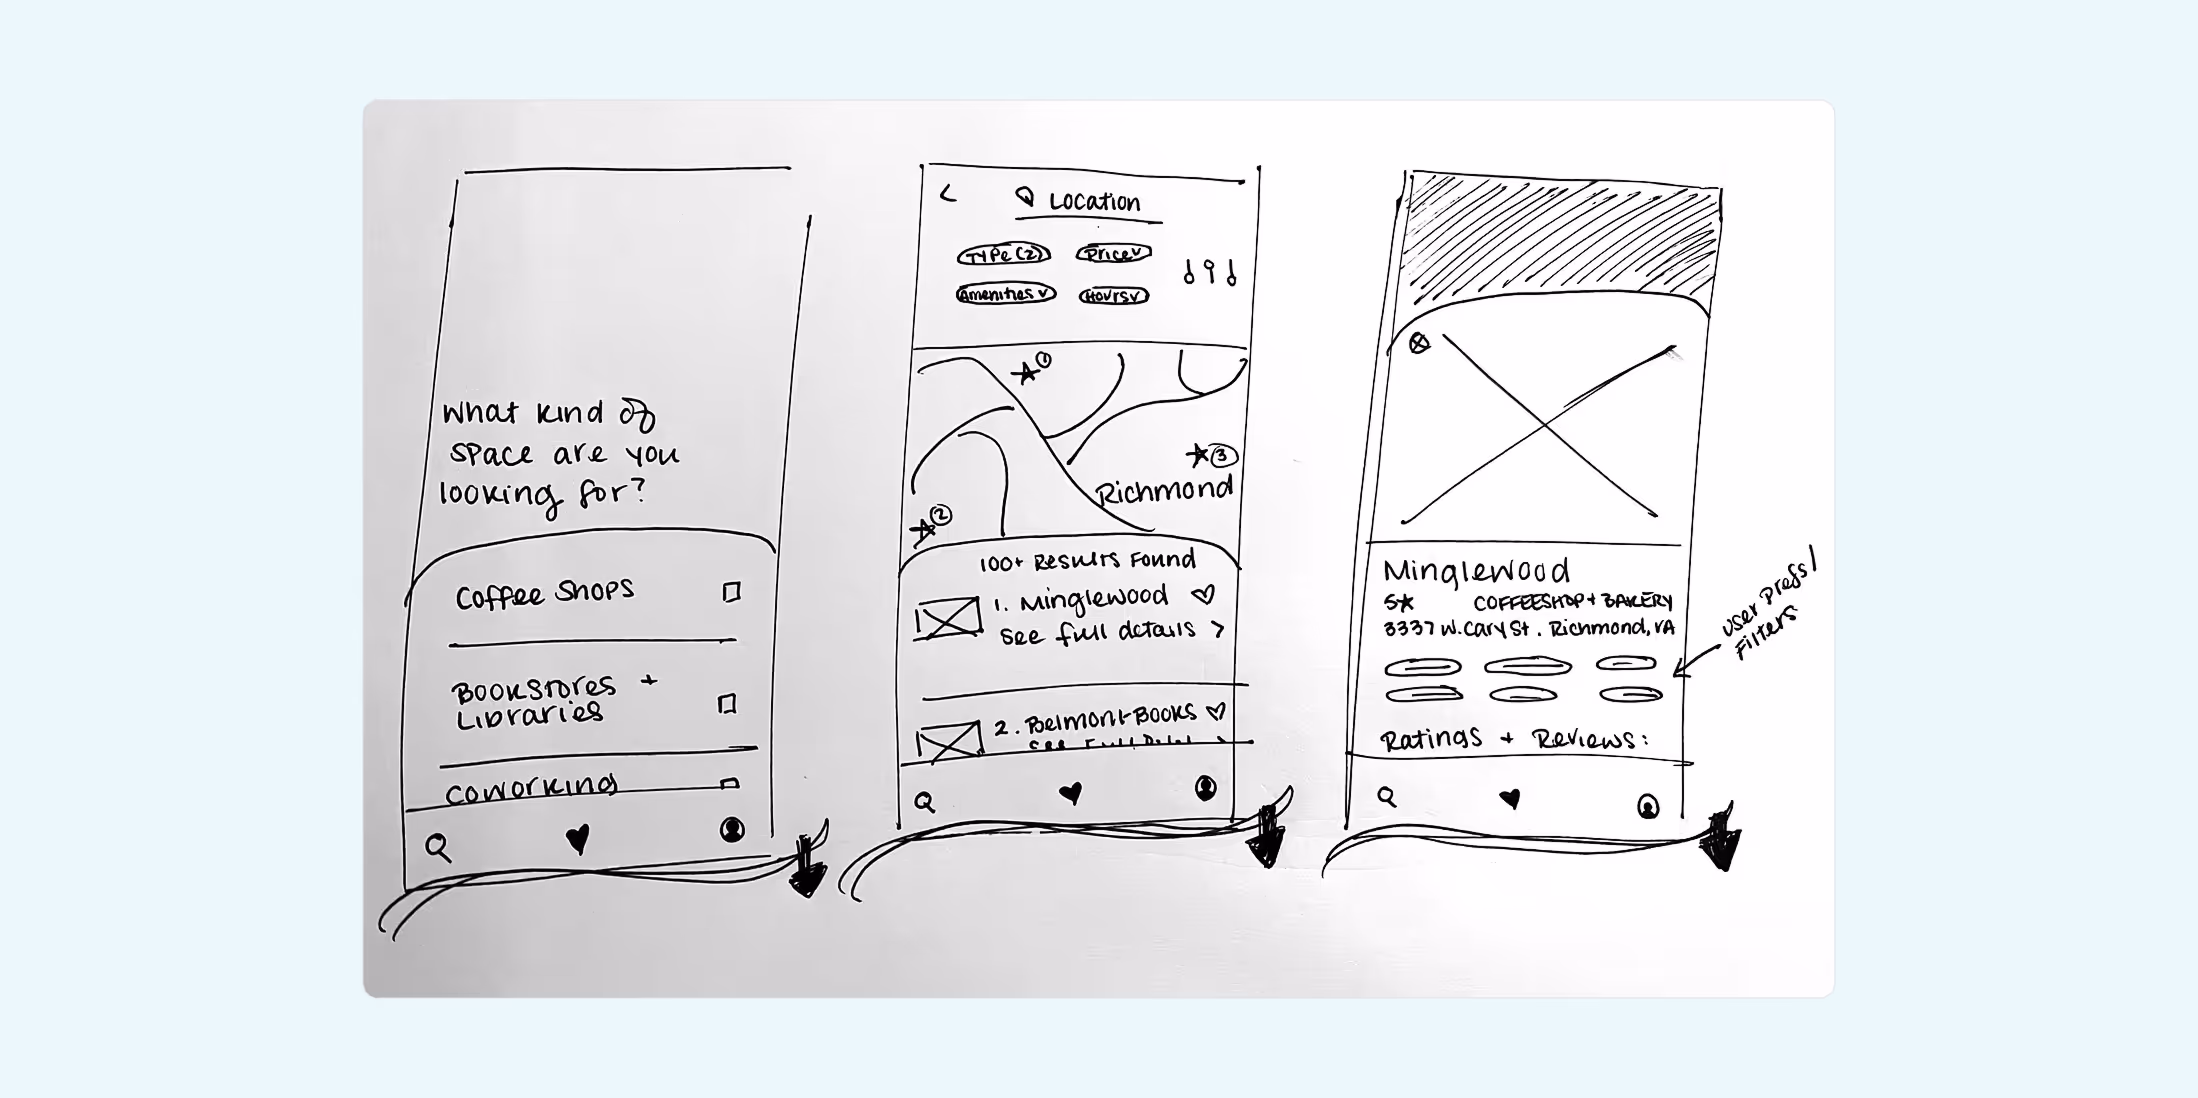 What kind of
space are you
looking for?
Coffee Shops
Bookstores +
Libraries
Coworking
Location
Type (2)
Price
Amenities
Hours
1
3
Richmond
2
100+ Results Found
1. Minglewood
See full details >
2. Belmont Books
Minglewood
5★ COFFEESHOP + BAKERY
3337 W. Cary St. Richmond, VA
User prefs/
Filters
Ratings + Reviews: